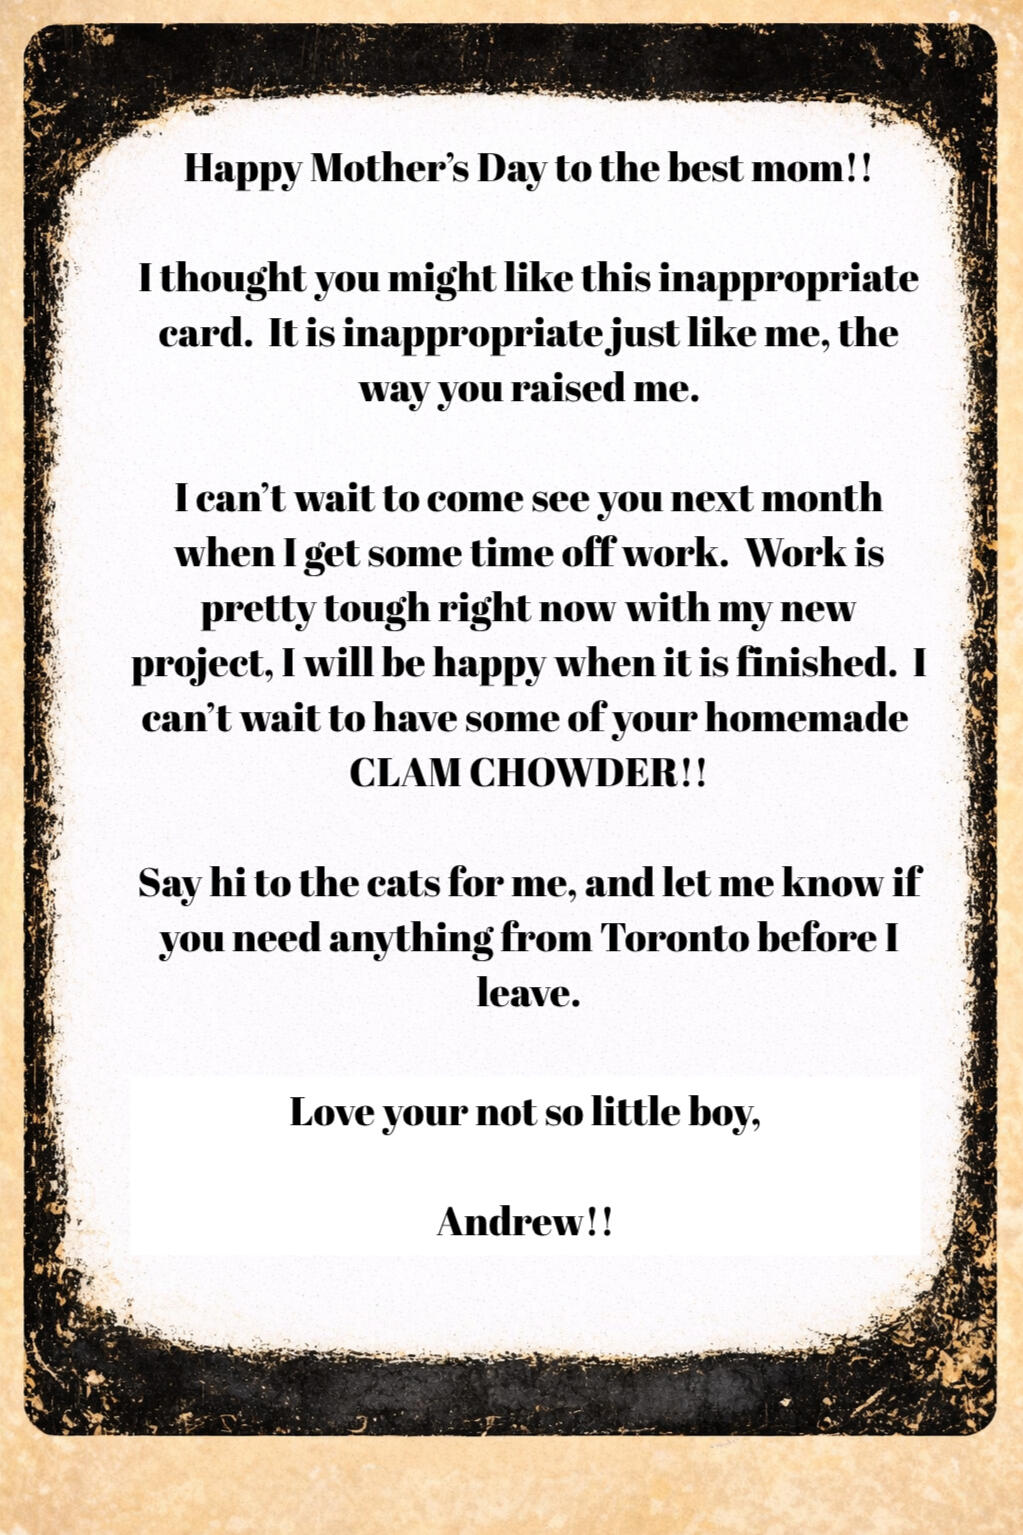 Happy Mother’s Day to the best mom!!
I thought you might like this inappropriate
card.  It is inappropriate just like me, the
way you raised me.
I can’t wait to come see you next month
when I get some time off work.  Work is
pretty tough right now with my new
project, I will be happy when it is finished.  I
can’t wait to have some of your homemade
CLAM CHOWDER!!
Say hi to the cats for me, and let me know if
you need anything from Toronto before I
leave.
Love your not so little boy,
Andrew!!